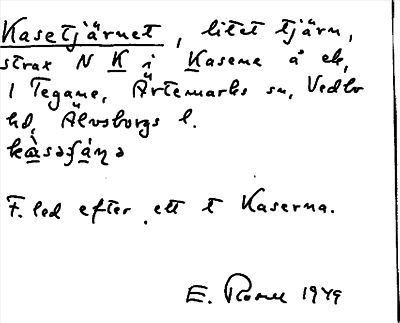 Kasetjärnet, litet tjärn,
strax N K i Kaserna å ek,
1 Tegane, Ärtemarks sn, Vedbo
hd, Älvsborgs l.
F. led efter ett t Kaserna.
E. 1949